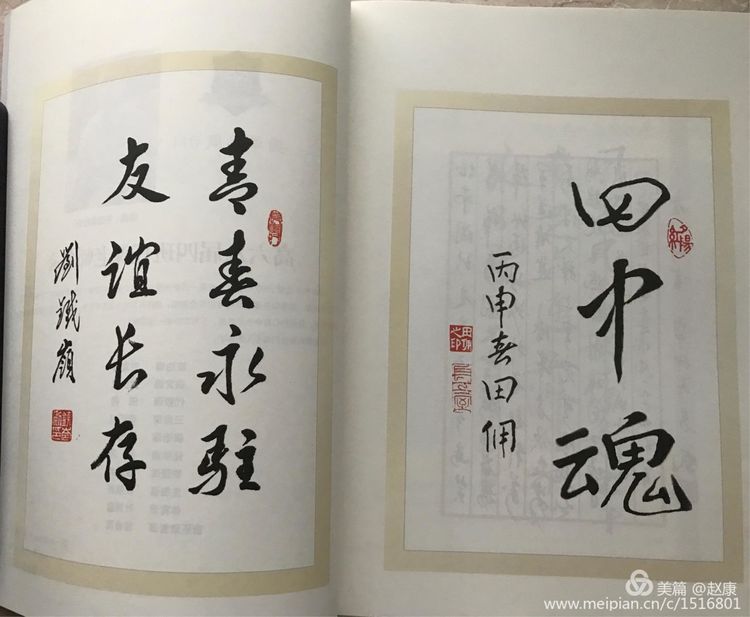 青春永驻
友谊长存
劉鐵嶺
四中魂
丙申春田佣
田佣之印
美篇 @赵康
www.meipian.cn/c/1516801